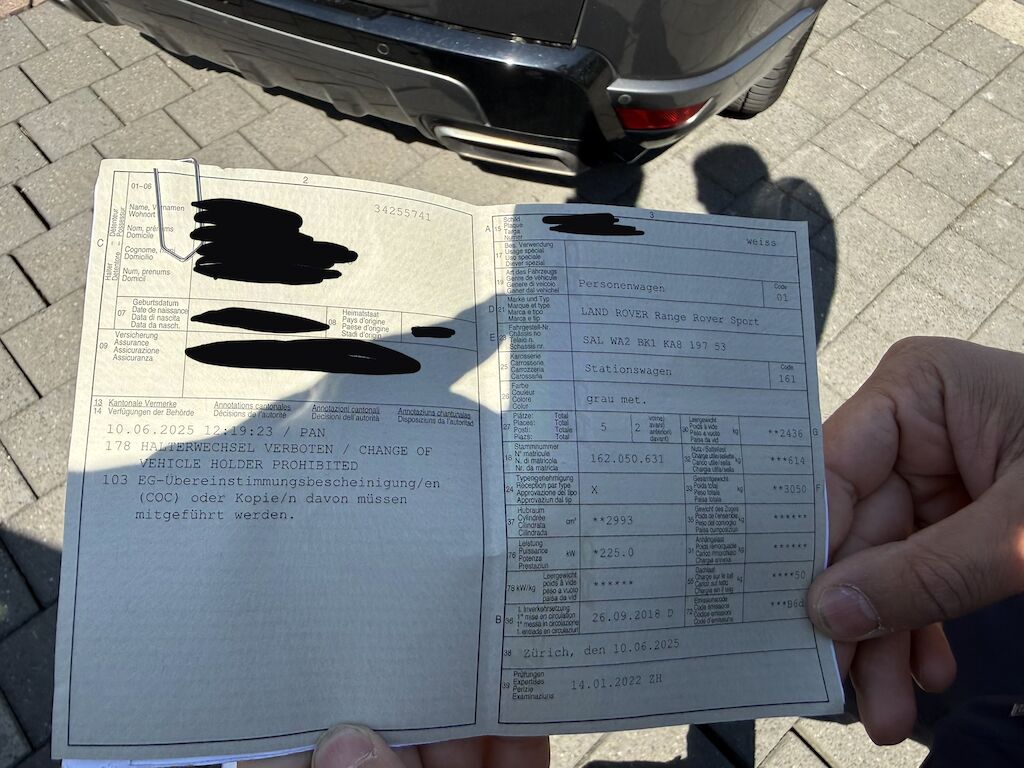 2
01-06
34255741
C
Halter
Détenteur
Detentore
Possessur
Name, Vornamen
Wohnort
Nom, prénoms
Domicile
Cognome, nomi
Domicilio
Num, prenums
Domicil
07
Geburtsdatum
Date de naissance
Data di nascita
Data da nasch.
08
Heimatstaat
Pays d'origine
Paese d'origine
Stadi d'origin
09
Versicherung
Assurance
Assicurazione
Assicuranza
13
14
Kantonale Vermerke
Verfügungen der Behörde
Annotations cantonales
Décisions de l'autorité
Annotazioni cantonali
Decisioni dell'autorità
Annotaziuns chantunalas
Disposiziuns da l'autoritad
10.06.2025 12:19:23 / PAN
178 HALTERWECHSEL VERBOTEN / CHANGE OF
VEHICLE HOLDER PROHIBITED
103 EG-Übereinstimmungsbescheinigung/en
(COC) oder Kopie/n davon müssen
mitgeführt werden.
3
A 15
Schild
Plaque
Targa
Numer
weiss
17
Bes. Verwendung
Usage spécial
Uso speciale
Diever spezial
19
Art des Fahrzeugs
Genre de véhicule
Genere di veicolo
Gener dal vehichel
Personenwagen
Code
01
D 21
Marke und Typ
Marque et type
Marca e tipo
Marca e tip
LAND ROVER Range Rover Sport
E 23
Fahrgestell-Nr.
Châssis no
Telaio n.
Schassis nr.
SAL WA2 BK1 KA8 197 53
25
Karosserie
Carrosserie
Carrozzeria
Carossaria
Stationswagen
Code
161
26
Farbe
Couleur
Colore
Colur
grau met.
27
Plätze: Total
Places: Total
Posti: Totale
Plazs: Total
5
2
vorne
avant
anteriori
davant
30
Leergewicht
Poids à vide
Peso a vuoto
Paisa da vid
kg
**2436
G
18
Stammnummer
N° matricule
N. di matricola
Nr. da matricla
162.050.631
32
Nutz-/Sattellast
kg
***614
24
Typengenehmigung
Réception par type
Approvazione del tipo
Approvaziun dal tip
X
33
Gesamtgewicht
Poids total
Peso totale
Paisa totala
kg
**3050
F
37
Hubraum
Cylindrée
Cilindrata
Cilindrada
cm³
**2993
35
Gewicht des Zuges
Poids de l'ensemble
Peso del convoglio
Paisa cumposiziun
kg
******
76
Leistung
Puissance
Potenza
Prestaziun
kW
*225.0
31
Anhängelast
kg
******
78 kW/kg
Leergewicht
poids à vide
peso a vuoto
paisa da vid
******
55
Dachlast
kg
****50
B 36
1. Inverkehrsetzung
1re mise en circulation
1a messa in circolazione
1. entrada en circulaziun
26.09.2018 D
72
Emissionscode
Code émissions
Codice emissioni
Code d'emissiuns
***B6d
38
Zürich, den 10.06.2025
39
Prüfungen
Expertises
Perizie
Examinaziuns
14.01.2022 ZH